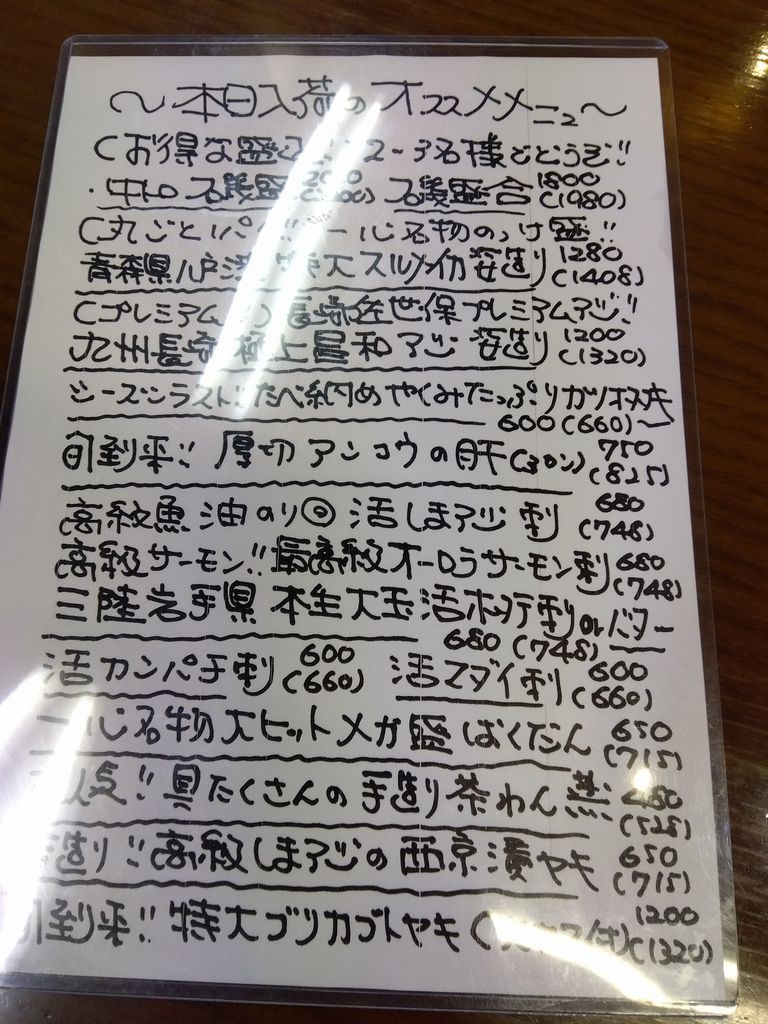 〜本日入荷のオススメメニュ〜
(お得な盛 2〜3名様でどうぞ!!
・中トロ 石後盛 石後盛合 1800 (1980)
(丸ごと 一心名物のっけ盛!!
青森県八戸 特大スルメイカ姿造り 1280 (1408)
(プレミアム 長崎佐世保プレミアムアジ!!
九州長崎極上昌和アジ 姿造り 1200 (1320)
シーズンラスト!!たべ納めやくみたっぷりカツオタタキ
600 (660)〜
旬到来!! 厚切アンコウの肝(ポン) 750 (825)
高級魚 油のり◎ 活しまアジ刺 680 (748)
高級サーモン!!最高級オーロラサーモン刺 680 (748)
三陸岩手県 本生大玉活ホタテ刺orバター
680 (748)
活カンパチ刺 600 (660) 活マダイ刺 600 (660)
一心名物大ヒットメガ盛ばくだん 650 (715)
!!具たくさんの手造り茶わん蒸 480 (528)
造り!!高級しまアジの西京漬ヤキ 650 (715)
旬到来!!特大ブリカブトヤキ( 付) 1200 (1320)